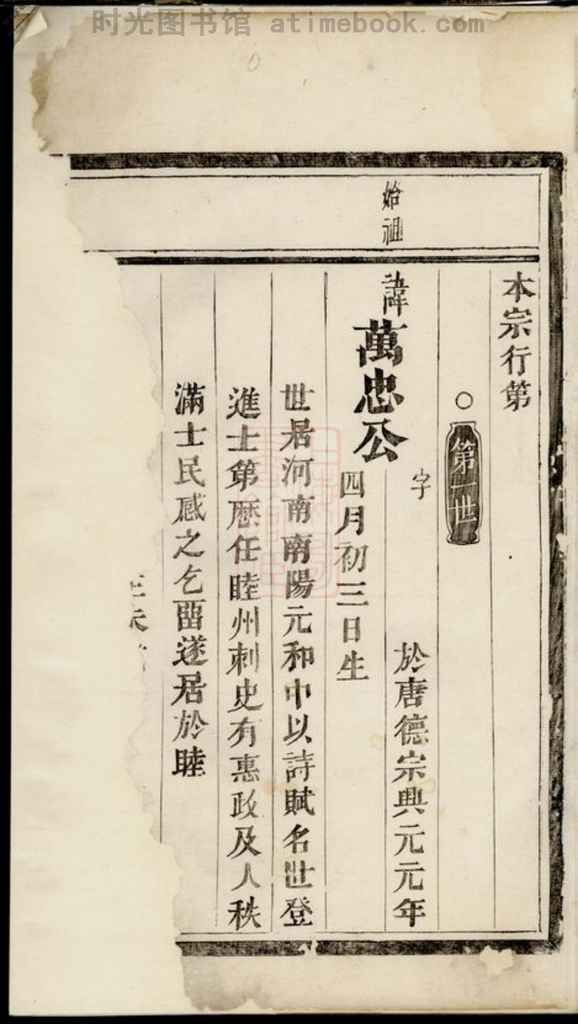 时光图书馆 atimebook.com
本宗行第
第一世
始祖
諱萬忠公
字
於唐德宗興元元年
四月初三日生
世居河南南陽元和中以詩賦名世登
進士第歷任睦州刺史有惠政及人秩
滿士民感之乞畱遂居於睦